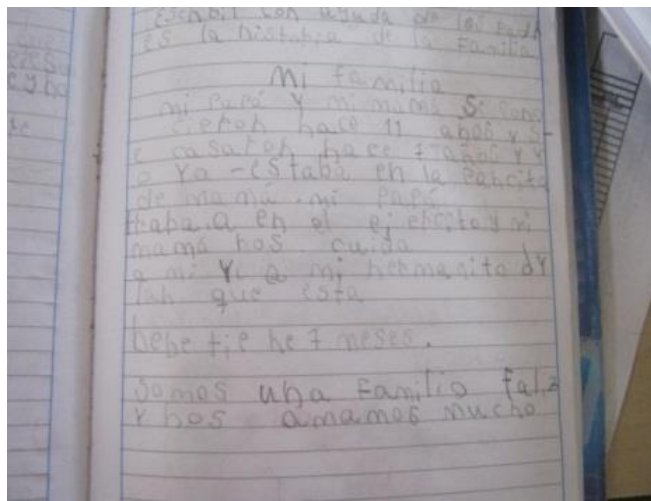 escribir con ayuda de los padr
es la historia de la Familia.
Mi familia
mi papá y mi mamá Se cono
cieron hace 11 años y S-
e casaron hace 7 años y y
o ya - estaba en la pancita
de mamá. mi papá
trabaja en el ejercito y mi
mamá nos cuida
a mi Y a mi hermanito dy
lan que esta
bebe tiene 7 meses.
Somos una Familia feliz
y nos amamos mucho